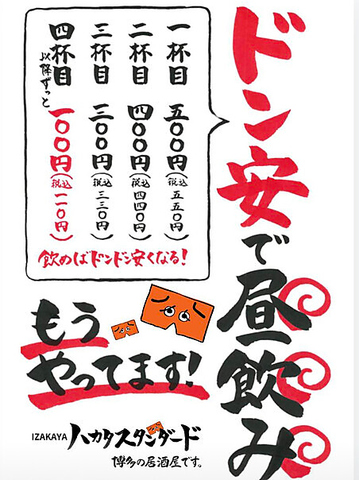 ドン安で昼飲み
一杯目 五〇〇円(税込五五〇円)
二杯目 四〇〇円(税込四四〇円)
三杯目 三〇〇円(税込三三〇円)
四杯目以降ずっと 一〇〇円(税込一一〇円)
飲めばドンドン安くなる!
もう
やってます!
IZAKAYA ハカタスタンダード
博多の居酒屋です。